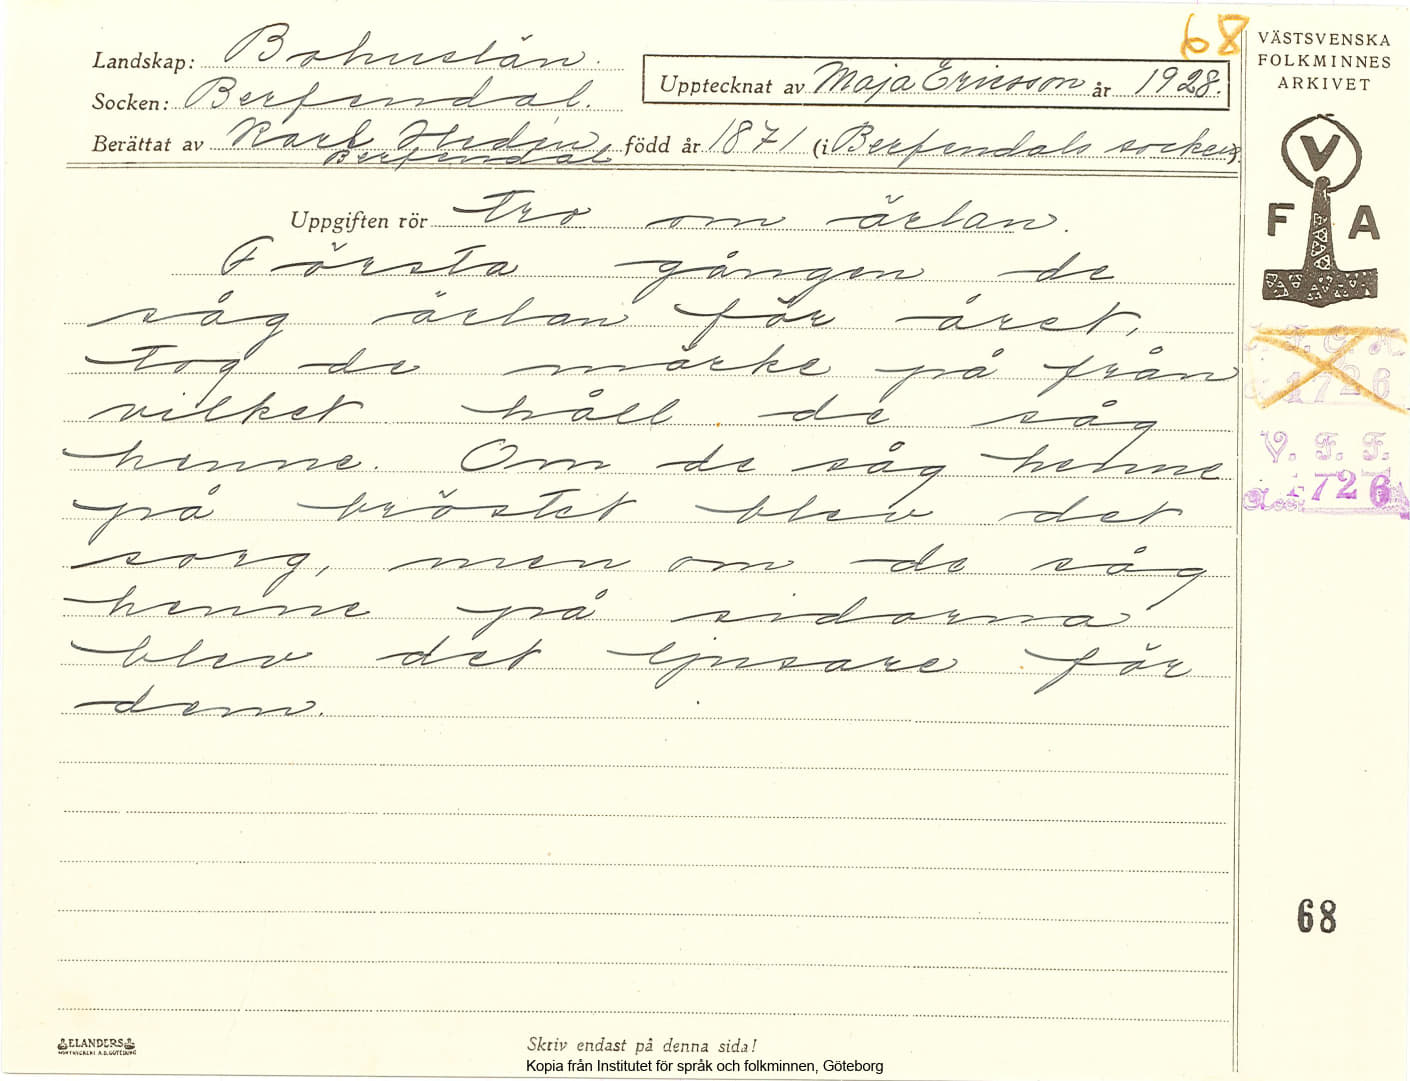 68
VÄSTSVENSKA
FOLKMINNES
ARKIVET
Landskap: Bohuslän.
Upptecknat av Maja Ericsson år 1928.
Socken: Berfendal.
Berättat av Karl Hedin född år 1871 (i Berfendals socken).
Berfendal
V
F A
Uppgiften rör Tro om ärlan.
Första gången de
såg ärlan för året,
tog de märke på från
vilket håll de såg
henne. Om de såg henne
på bröstet blev det
sorg, men om de såg
henne på sidorna
blev det ljusare för
dem.
1726
V. F. F.
1726
68
ELANDERS
Skriv endast på denna sida!
Kopia från Institutet för språk och folkminnen, Göteborg